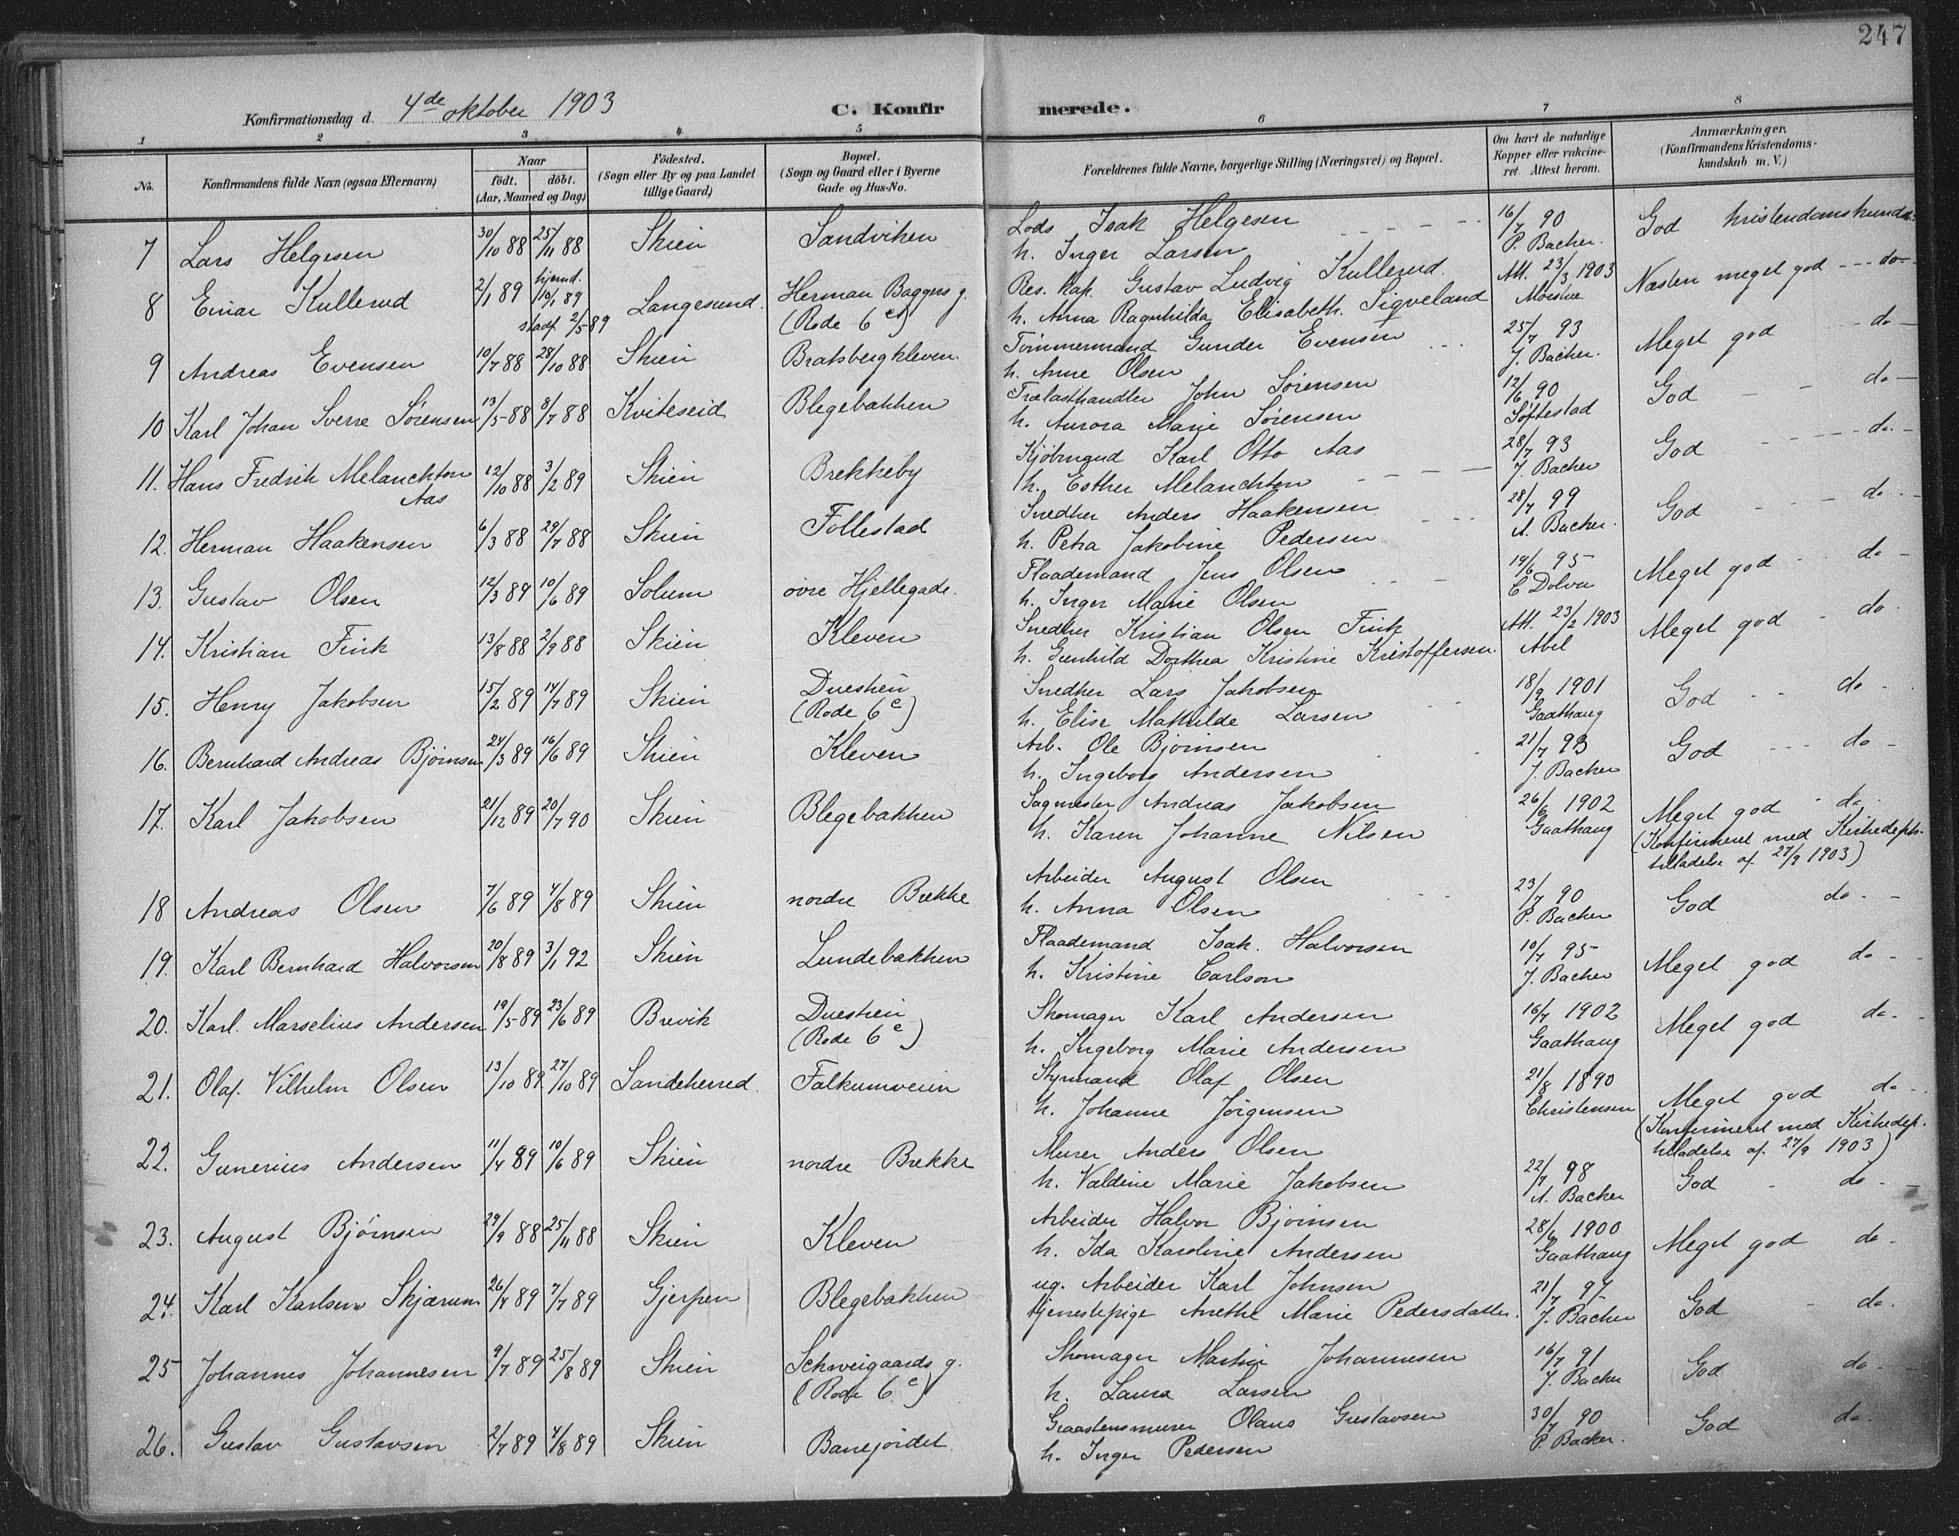 247
Konfirmationsdag d. 4de oktober 1903 C. Konfirmerede.
1 2 3 4 5 6 7 8
No. Konfirmandens fulde Navn (ogsaa Efternavn) Naar født. døbt. (Aar, Maaned og Dag) Fødested. (Sogn eller By og paa Landet tillige Gaard) Bopæl. (Sogn og Gaard eller i Byerne Gade og Hus-No. Forældrenes fulde Navne, borgerlige Stilling (Næringsvei) og Bopæl. Om havt de naturlige Kopper eller vakcineret. Attest herom. Anmærkninger. (Konfirmandens Kristendomskundskab m. V.)
7 Lars Helgesen 30/10 88 25/11 88 Skien Sandviken Lods Isak Helgesen 16/7 90 God kristendomskundsk.
h. Inger Larsen P. Backer.
8 Einar Kullerud 2/1 89 hjemd. 19/1 89 Langesund. Herman Baggers g. Res. kap. Gustav Ludvig Kullerud. Att. 23/3 1903 Næsten meget god - do -
stadf. 2/5 89 (Rode 6 c) h. Anna Ragnhilda Elisabeth Sigveland Moestue
9 Andreas Evensen 10/7 88 28/10 88 Skien Bratsbergkleven. Tømmermand Gunder Evensen 25/7 93 Meget god do -
h. Anne Olsen J. Backer.
10 Karl Johan Sverre Sørensen 13/5 88 8/7 88 Kviteseid Blegebakken Trælasthandler John Sørensen 12/6 90 God - do -
h. Aurora Marie Sørensen Søftestad
11. Hans Fredrik Melanchton 12/10 88 3/2 89 Skien Brekkeby Kjøbmand Karl Otto Aas 28/7 93 God do. -
Aas h. Esther Melanchton J. Backer
12. Herman Haakensen 6/3 88 29/7 88 Skien Follestad Snedker Anders Haakensen 28/7 99 God - do -
h. Petra Jakobine Pedersen A. Backer.
13. Gustav Olsen 12/3 89 10/6 89 Solum øvre Hjellegade. Flaademand Jens Olsen 19/6 95 Meget god - do -
h. Inger Marie Olsen C Dolva
14. Kristian Fink 13/8 88 2/9 88 Skien Kleven Snedker Kristian Olsen Fink Att. 23/2 1903 Meget god - do
h. Gunhild Dorthea Kristine Kristoffersen. Abel
15. Henry Jakobsen 15/2 89 14/7 89 Skien Duestien Snedker Lars Jakobsen 18/9 1901 God - do -
(Rode 6 c) h. Elise Mathilde Larsen Gaathaug
16. Bernhard Andreas Bjørnsen 24/3 89 16/6 89 Skien Kleven Arb. Ole Bjørnsen 21/7 93 God - do -
h. Ingeborg Andersen J. Backer
17. Karl Jakobsen 21/12 89 20/7 90 Skien Blegebakken Sagmester Andreas Jakobsen 26/6 1902 Meget god - do.
h. Karen Johanne Nilsen Gaathaug (Konfirmeret med Kirkedepts.
tilladelse af 27/9 1903)
18 Andreas Olsen 7/6 89 4/8 89 Skien nordre Brekke Arbeider August Olsen 23/7 90 God do. -
h. Anna Olsen P. Backer
19. Karl Bernhard Halvorsen 20/8 89 3/1 92 Skien Lundebakken Flaademand Isak Halvorsen 10/7 95 Meget god do - -
h. Kristine Carlson J. Backer
20. Karl Marselius Andersen 19/5 89 23/6 89 Brevik Duestien Skomager Karl Andersen 16/7 1902 Meget god do. -
(Rode 6 c) h. Ingeborg Marie Andersen Gaathaug
21. Olaf Vilhelm Olsen 13/10 89 27/10 89 Sandeherred. Falkumveien Styrmand Olaf Olsen 21/8 1890 Meget god do -
h. Johanne Jørgensen Christensen (Konfirmeret med Kirkedep.
tilladelse af 27/9 1903)
22. Gunerius Andersen 11/4 89 10/6 89 Skien nordre Brekke Murer Anders Olsen 22/7 98 God - do -
h. Valdine Marie Jakobsen A. Backer
23. August Bjørnsen 29/9 88 25/11 88 Skien Kleven Arbeider Halvor Bjørnsen 28/6 1900 Meget god do.
h. Ida Karoline Andersen Gaathaug
24. Karl Karlsen Skjærum 26/4 89 7/7 89 Gjerpen Blegebakken ug. Arbeider Karl Johnsen 21/7 97 God - do.
tjenestepige Anethe Marie Pedersdatter. J. Backer
25 Johannes Johannesen 9/7 89 25/8 89 Skien Schweigaards g. Skomager Martin Johannesen 16/7 91 God do -
(Rode 6 c) h. Laura Larsen J. Backer
26. Gustav Gustavsen 2/7 89 4/8 89 Skien Banejordet. Graastensmurer Olaus Gustavsen 30/7 90 God do.
h. Inger Pedersen P. Backer.